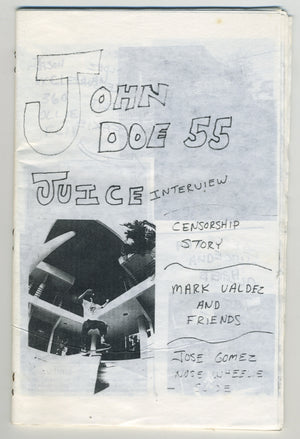 JOHN
DOE 55
JUICE INTERVIEW
CENSORSHIP
STORY
MARK VALDEZ
AND
FRIENDS
JOSE GOMEZ
NOSE WHEELIE